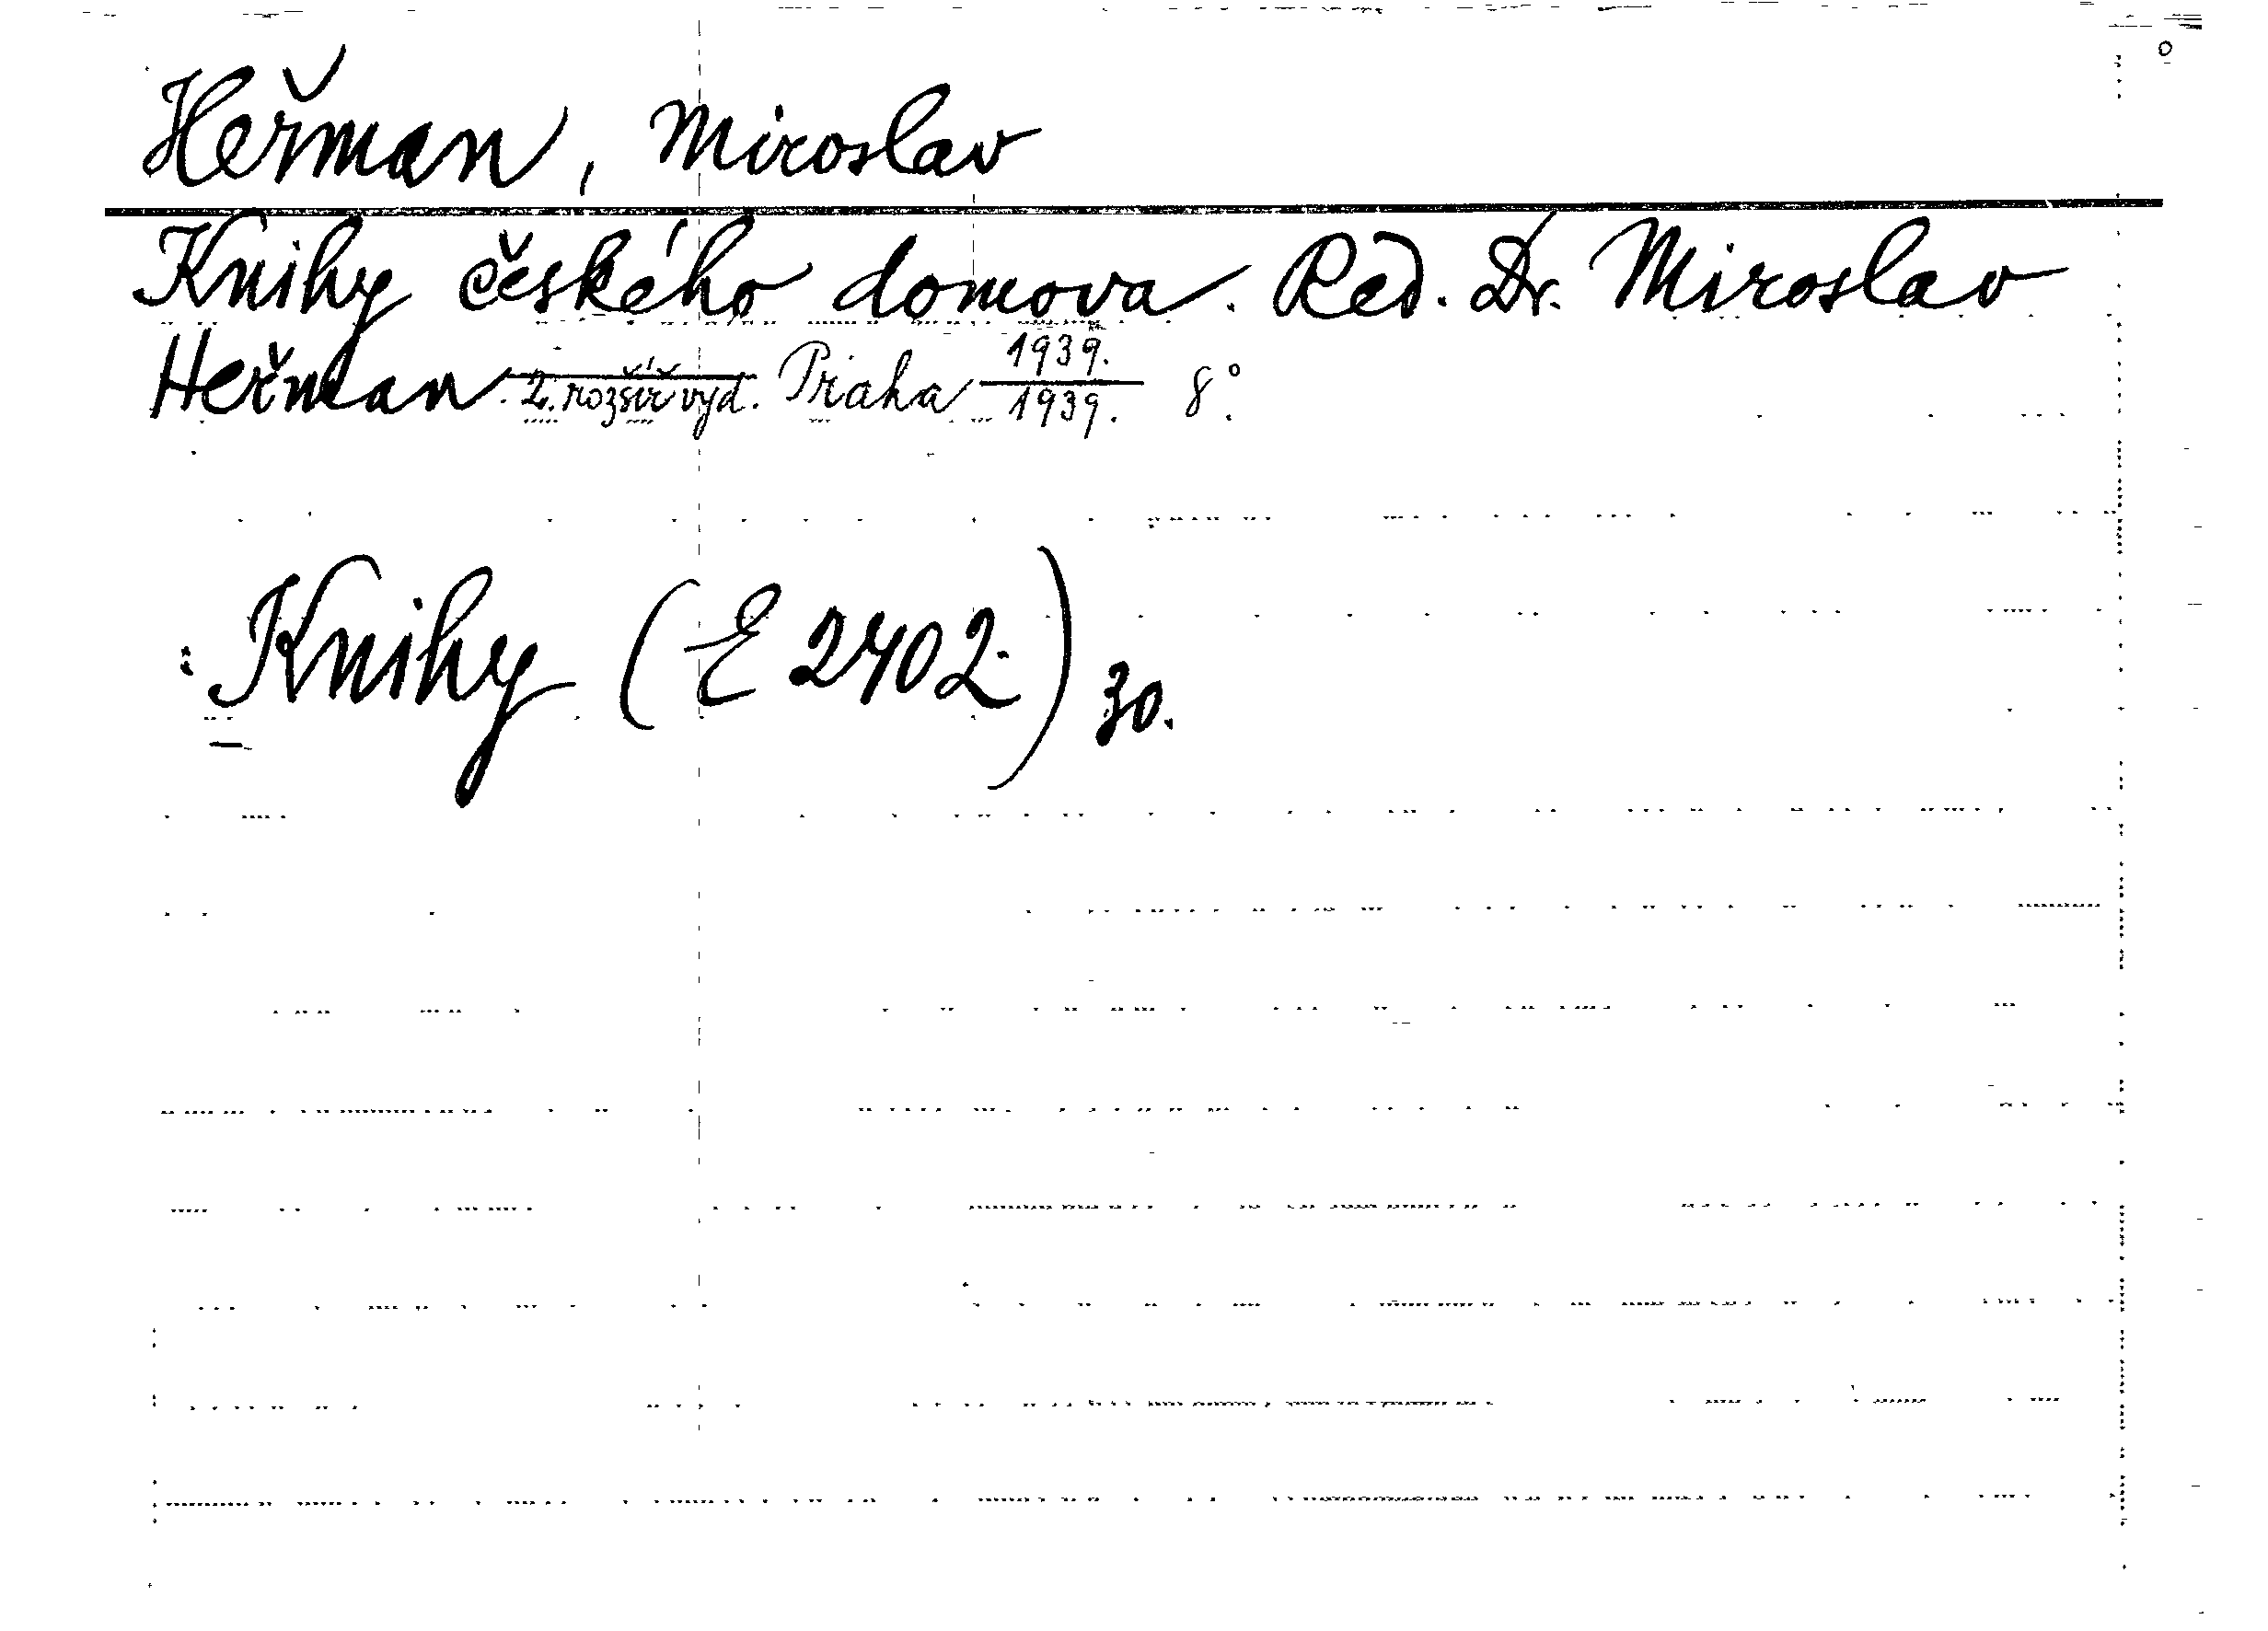 Heřman, Miroslav
Knihy českého domova. Red. Dr. Miroslav
Heřman. 2. rozšíř vyd. Praha 1939. 1939. 8°.
Knihy (E 2402) 30.